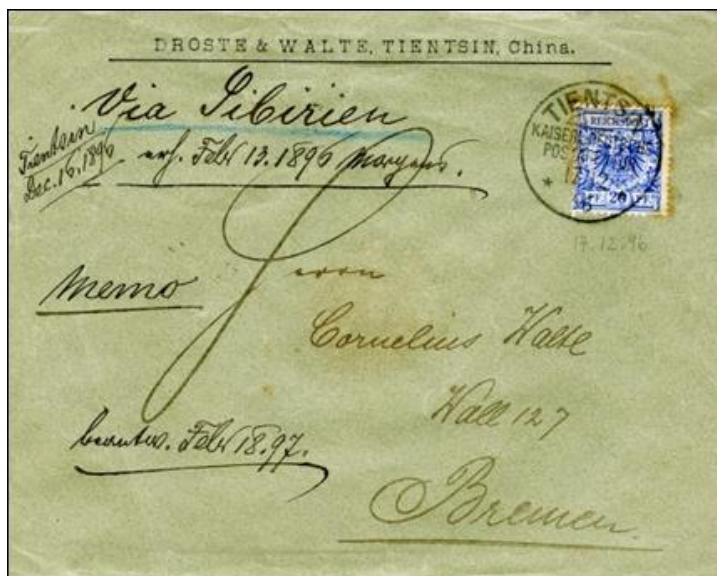 DROSTE & WALTE, TIENTSIN, China.
Via Sibirien
Tientsin
Dec. 16. 1896
erh. Febr 13. 1896 Morgens.
TIENTSIN
KAISERL. DEUTSCHE
POST
17 12
96
REICHSPOST
PF 20 PF
17.12.96
Memo
Herrn
Cornelius Walte
Wall 127
beantw. Febr 18. 97.
Bremen.